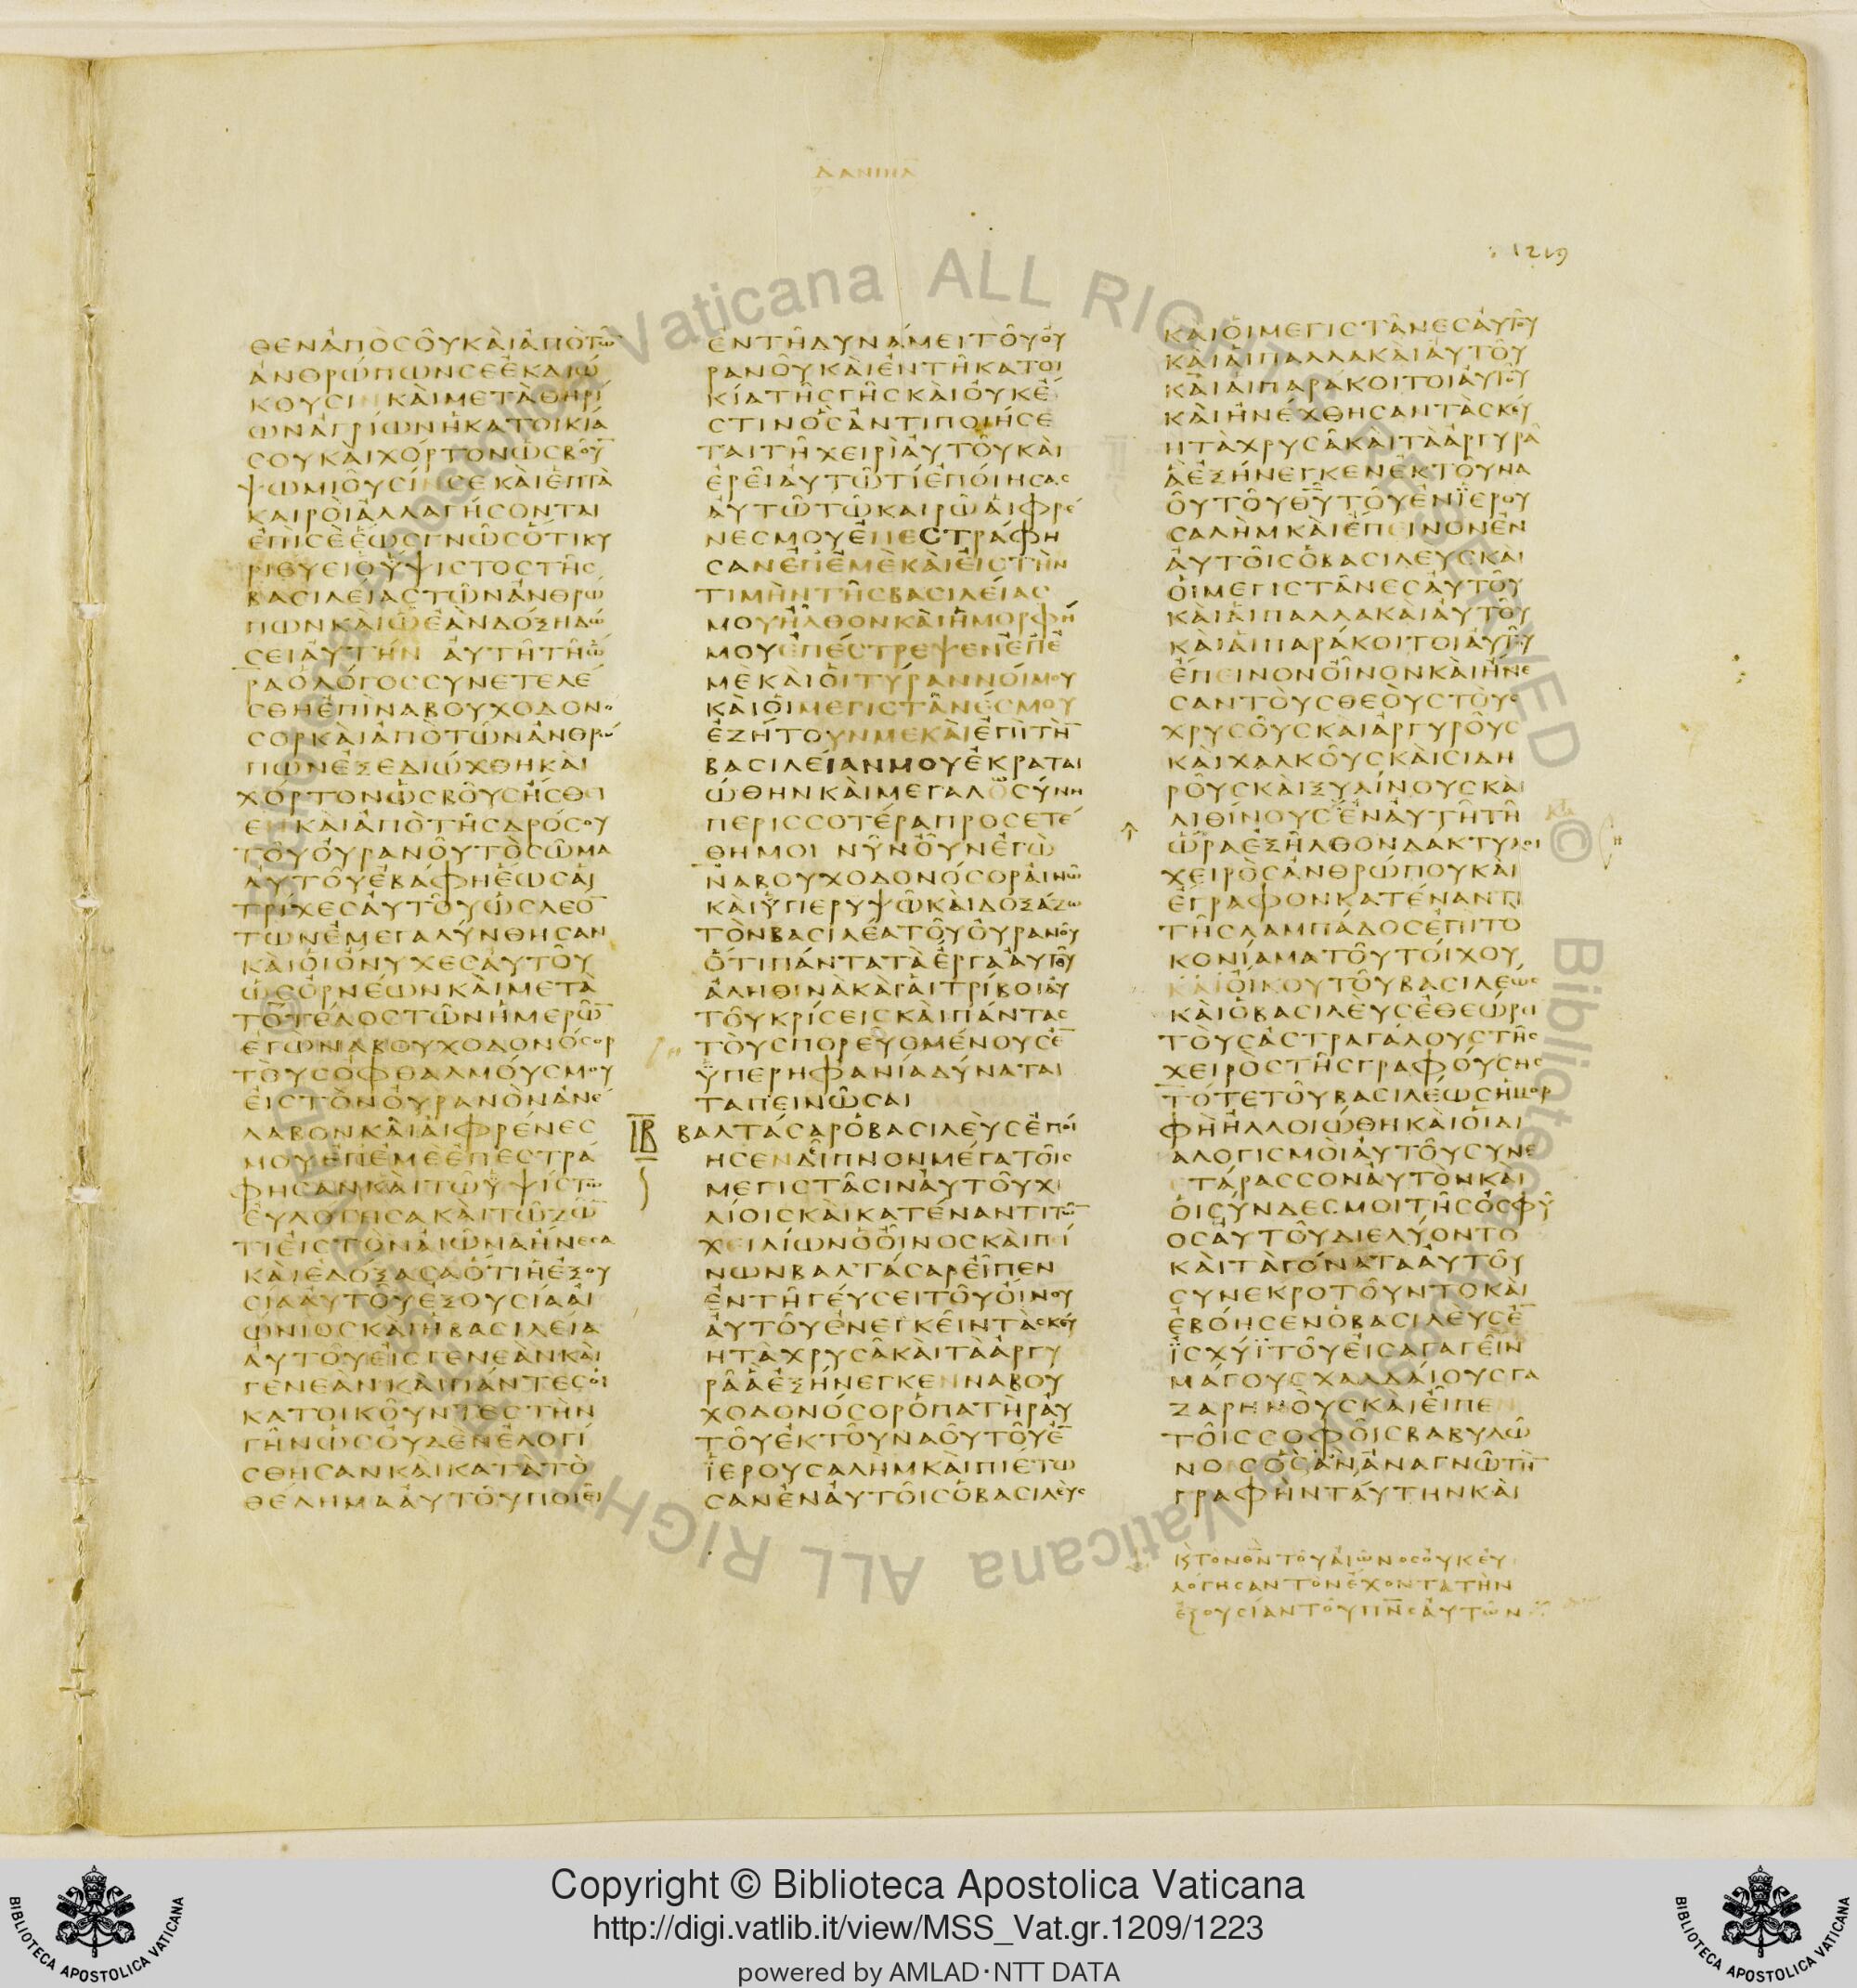 ΔΑΝΙΗΛ
1219
ΘΕΝἈΠῸϹΟΥ͂ΚΑῚἈΠῸΤΩ͂
ἈΝΘΡΏΠΩΝϹΕἘΚΔΙΏ
ΚΟΥϹΙΝΚΑῚΜΕΤᾺΘΗΡΊ
ΩΝἈΓΡΊΩΝἩΚΑΤΟΙΚΊΑ
ϹΟΥΚΑῚΧΌΡΤΟΝὩϹΒΟΥ͂
ΨΩΜΙΟΥ͂ϹΊΝϹΕΚΑῚἙΠΤᾺ
ΚΑΙΡΟῚἈΛΛΑΓΉϹΟΝΤΑΙ
ἘΠῚϹῈἝΩϹΓΝΩ͂ϹὍΤΙΚΥ
ΡΙΕΥΕΙὉὝΨΙϹΤΟϹΤΗ͂Ϲ
ΒΑϹΙΛΕΊΑϹΤΩ͂ΝἈΝΘΡΏ
ΠΩΝΚΑῚὯἘᾺΝΔΌΞΗΔΏ
ϹΕΙΑΥ̓ΤΉΝ ΑΥ̓ΤΗ͂ΤΗ͂Ὥ
ΡΑὉΛΌΓΟϹϹΥΝΕΤΕΛΈ
ϹΘΗἘΠῚΝΑΒΟΥΧΟΔΟΝΟ
ϹΟΡΚΑῚἈΠῸΤΩ͂ΝἈΝΘΡΏ
ΠΩΝἘΞΕΔΙΏΧΘΗΚΑῚ
ΧΌΡΤΟΝὩϹΒΟΥ͂ϹἬϹΘΙ
ΕΝΚΑῚἈΠῸΤΗ͂ϹΔΡΌϹΟΥ
ΤΟΥ͂ΟΥ̓ΡΑΝΟΥ͂ΤῸϹΩ͂ΜΑ
ΑΥ̓ΤΟΥ͂ἘΒΆΦΗἝΩϹΑἹ
ΤΡΊΧΕϹΑΥ̓ΤΟΥ͂ὩϹΛΕΌ
ΤΩΝἘΜΕΓΑΛΎΝΘΗϹΑΝ
ΚΑῚΟἹὌΝΥΧΕϹΑΥ̓ΤΟΥ͂
ὩϹὈΡΝΈΩΝΚΑῚΜΕΤᾺ
ΤῸΤΈΛΟϹΤΩ͂ΝἩΜΕΡΩ͂
ἘΓΩΝΑΒΟΥΧΟΔΟΝΌϹΟΡ
ΤΟῪϹὈΦΘΑΛΜΟΎϹΜΟΥ
ΕἸϹΤῸΝΟΥ̓ΡΑΝῸΝἈΝΈ
ΛΑΒΟΝΚΑῚΑἹΦΡΈΝΕϹ
ΜΟΥἘΠΕΜῈἘΠΕϹΤΡΆ
ΦΗϹΑΝΚΑῚΤΩ͂ὙΨΊϹΤΩ
ΕΥ̓ΛΌΓΗϹΑΚΑῚΤΩ͂ΖΩ͂
ΤΙΕἸϹΤῸΝΑἸΩ͂ΝΑἬΝΕϹΑ
ΚΑῚἘΔΌΞΑϹΑὍΤΙἩἘΞΟΥ
ϹΙΑΑΥ̓ΤΟΥ͂ἘΞΟΥϹΙΑΑἸ
ΩΝΙΟϹΚΑῚἩΒΑϹΙΛΕΙΑ
ΑΥ̓ΤΟΥ͂ΕἸϹΓΕΝΕᾺΝΚΑῚ
ΓΕΝΕΆΝΚΑῚΠΆΝΤΕϹΟἹ
ΚΑΤΟΙΚΟΥ͂ΝΤΕϹΤῊΝ
ΓΗ͂ΝὩϹΟΥ̓ΔῈΝἘΛΟΓΊ
ϹΘΗϹΑΝΚΑῚΚΑΤᾺΤῸ
ΘΈΛΗΜΑΑΥ̓ΤΟΥ͂ΠΟΙΕΙ͂
ἘΝΤΗ͂ΔΥΝΆΜΕΙΤΟΥ͂ΟΥ̓
ΡΑΝΟΥ͂ΚΑῚἘΝΤΗ͂ΚΑΤΟΙ
ΚΊΑΤΗ͂ϹΓΗ͂ϹΚΑῚΟΥ̓ΚΈ
ϹΤΙΝὋϹἈΝΤΙΠΟΙΉϹΕ
ΤΑΙΤΗ͂ΧΕΙΡῚΑΥ̓ΤΟΥ͂ΚΑῚ
ἘΡΕΙ͂ΑΥ̓ΤΩ͂ΤΊἘΠΟΊΗϹΑϹ
ΑΥ̓ΤΩ͂ΤΩ͂ΚΑΙΡΩ͂ΑἹΦΡΈ
ΝΕϹΜΟΥἘΠΕϹΤΡΆΦΗ
ϹΑΝἘΠἘΜῈΚΑῚΕἸϹΤῊΝ
ΤΙΜῊΝΤΗ͂ϹΒΑϹΙΛΕΊΑϹ
ΜΟΥἮΛΘΟΝΚΑῚἩΜΟΡΦΉ
ΜΟΥἘΠΈϹΤΡΕΨΕΝἘΠἘ
ΜῈΚΑῚΟἹΤΎΡΑΝΝΟΊΜΟΥ
ΚΑῚΟἹΜΕΓΙϹΤΑ͂ΝΈϹΜΟΥ
ἘΖΉΤΟΥΝΜΕΚΑῚἘΠῚΤῊ
ΒΑϹΙΛΕΊΑΝΜΟΥἘΚΡΑΤΑΙ
ΏΘΗΝΚΑῚΜΕΓΑΛΟϹΎΝΗ
ΠΕΡΙϹϹΟΤΈΡΑΠΡΟϹΕΤΈ
ΘΗΜΟΙ ΝΥ͂ΝΟΥ͂ΝἘΓῺ
ΝΑΒΟΥΧΟΔΟΝΌϹΟΡΑἸΝΩ͂
ΚΑῚὙΠΕΡΥΨΩ͂ΚΑῚΔΟΞΆΖΩ
ΤῸΝΒΑϹΙΛΈΑΤΟΥ͂ΟΥ̓ΡΑΝΟΥ͂
ὍΤΙΠΆΝΤΑΤᾺἜΡΓΑΑΥ̓ΤΟΥ͂
ἈΛΗΘΙΝᾺΚΑῚΑἹΤΡΊΒΟΙΑΥ̓
ΤΟΥ͂ΚΡΊϹΕΙϹΚΑῚΠΆΝΤΑϹ
ΤΟῪϹΠΟΡΕΥΟΜΈΝΟΥϹἘ
ὙΠΕΡΗΦΑΝΊΑΔΎΝΑΤΑΙ
ΤΑΠΕΙΝΩ͂ϹΑΙ
ΙΒ ΒΑΛΤΆϹΑΡὉΒΑϹΙΛΕῪϹἘΠΟΊ
ΗϹΕΝΔΕΙ͂ΠΝΟΝΜΈΓΑΤΟΙ͂Ϲ
ΜΕΓΙϹΤΑ͂ϹΙΝΑΥ̓ΤΟΥ͂ΧΙ
ΛΊΟΙϹΚΑῚΚΑΤΈΝΑΝΤΙΤΩ͂
ΧΕΙΛΊΩΝὉΟἾΝΟϹΚΑῚΠΊ
ΝΩΝΒΑΛΤΆϹΑΡΕἾΠΕΝ
ἘΝΤΗ͂ΓΕΎϹΕΙΤΟΥ͂ΟἼΝΟΥ
ΑΥ̓ΤΟΥ͂ἘΝΕΓΚΕΙ͂ΝΤᾺϹΚΕΎ
ΗΤᾺΧΡΥϹΑ͂ΚΑῚΤᾺἈΡΓΥ
ΡΑ͂ἋἘΞΉΝΕΓΚΕΝΝΑΒΟΥ
ΧΟΔΟΝΌϹΟΡὉΠΑΤῊΡΑΥ̓
ΤΟΥ͂ἘΚΤΟΥ͂ΝΑΟΥ͂ΤΟΥ͂Ἐ
ἸΕΡΟΥϹΑΛῊΜΚΑῚΠΙΈΤΩ
ϹΑΝἘΝΑΥ̓ΤΟΙ͂ϹὉΒΑϹΙΛΕῪϹ
ΚΑῚΟἹΜΕΓΙϹΤΑ͂ΝΕϹΑΥ̓ΤΟΥ͂
ΚΑῚΑἹΠΑΛΛΑΚΑῚΑΥ̓ΤΟΥ͂
ΚΑῚΑἹΠΑΡΆΚΟΙΤΟΙΑΥ̓ΤΟΥ͂
ΚΑῚἨΝΈΧΘΗϹΑΝΤᾺϹΚΕΎ
ΗΤᾺΧΡΥϹΑ͂ΚΑῚΤᾺἈΡΓΥΡΑ͂
ἋἘΞΉΝΕΓΚΕΝἘΚΤΟΥ͂ΝΑ
ΟΥ͂ΤΟΥ͂ΘΥ͂ΤΟΥ͂ἘΝἸΕΡΟΥ
ϹΑΛῊΜΚΑῚἘΠΕΙΝΟΝἘΝ
ΑΥ̓ΤΟΙ͂ϹὉΒΑϹΙΛΕΥϹΚΑΙ
ΟἹΜΕΓΙϹΤΑ͂ΝΕϹΑΥ̓ΤΟΥ͂
ΚΑῚΑἹΠΑΛΛΑΚΑῚΑΥ̓ΤΟΥ͂
ΚΑῚΑἹΠΑΡΆΚΟΙΤΟΙΑΥ̓ΤΟΥ͂
ἘΠΕΙΝΟΝΟἾΝΟΝΚΑῚἨΝΕ
ϹΑΝΤΟῪϹΘΕΟῪϹΤΟῪϹ
ΧΡΥϹΟΥ͂ϹΚΑῚἈΡΓΥΡΟΥ͂Ϲ
ΚΑῚΧΑΛΚΟΥ͂ϹΚΑῚϹΙΔΗ
ΡΟΥ͂ϹΚΑῚΞΥΛΊΝΟΥϹΚΑῚ
ΛΙΘΊΝΟΥϹἘΝΑΥ̓ΤΗ͂ΤΗ͂
ὭΡΑἘΞΗ͂ΛΘΟΝΔΑΚΤΥΛΟΙ
ΧΕΙΡῸϹἈΝΘΡΏΠΟΥΚΑῚ
ἜΓΡΑΦΟΝΚΑΤΈΝΑΝΤΙ
ΤΗ͂ϹΛΑΜΠΆΔΟϹἘΠῚΤΟ
ΚΟΝΊΑΜΑΤΟΥ͂ΤΟΊΧΟΥ
ΚΑῚΟἼΚΟΥΤΟΥ͂ΒΑϹΙΛΕΩϹ
ΚΑῚὉΒΑϹΙΛΕῪϹἘΘΕΏΡΕΙ
ΤΟῪϹἈϹΤΡΑΓΆΛΟΥϹΤΗ͂Ϲ
ΧΕΙΡῸϹΤΗ͂ϹΓΡΑΦΟΎϹΗϹ
ΤΌΤΕΤΟΥ͂ΒΑϹΙΛΈΩϹἩΜΟΡ
ΦῊἨΛΛΟΙΏΘΗΚΑῚΟἹΔΙ
ΑΛΟΓΙϹΜΟῚΑΥ̓ΤΟΥ͂ϹΥΝΕ
ΤΆΡΑϹϹΟΝΑΥ̓ΤῸΝΚΑῚ
ΟἹϹΎΝΔΕϹΜΟΙΤΗ͂ϹὈϹΦΎ
ΟϹΑΥ̓ΤΟΥ͂ΔΙΕΛΎΟΝΤΟ
ΚΑῚΤᾺΓΌΝΑΤΑΑΥ̓ΤΟΥ͂
ϹΥΝΕΚΡΟΤΟΥ͂ΝΤΟΚΑῚ
ἘΒΌΗϹΕΝὉΒΑϹΙΛΕῪϹἘ
ἸϹΧΎΪΤΟΥ͂ΕἸϹΑΓΑΓΕΙ͂Ν
ΜΆΓΟΥϹΧΑΛΔΑΊΟΥϹΓΑ
ΖΑΡΗΝΟῪϹΚΑῚΕἾΠΕΝ
ΤΟΙ͂ϹϹΟΦΟΙ͂ϹΒΑΒΥΛΩ͂
ΝΟϹὋϹἊΝἈΝΑΓΝΩ͂ΤῊ
ΓΡΑΦῊΝΤΑΎΤΗΝΚΑῚ
ΚΣΤΟΝΘΝΤΟΥ͂ΑἸΩ͂ΝΟϹΟΥ̓ΚΕΥ̓
ΛΌΓΗϹΑΝΤῸΝἜΧΟΝΤΑΤῊΝ
ἘΞΟΥϹΊΑΝΤΟΥ͂ΠΝϹΑΥ̓ΤΩ͂Ν
Copyright © Biblioteca Apostolica Vaticana
http://digi.vatlib.it/view/MSS_Vat.gr.1209/1223
powered by AMLAD·NTT DATA
BIBLIOTECA APOSTOLICA VATICANA
BIBLIOTECA APOSTOLICA VATICANA
© Biblioteca Apostolica Vaticana ALL RIGHTS RESERVED
© Biblioteca Apostolica Vaticana ALL RIGHTS RESERVED